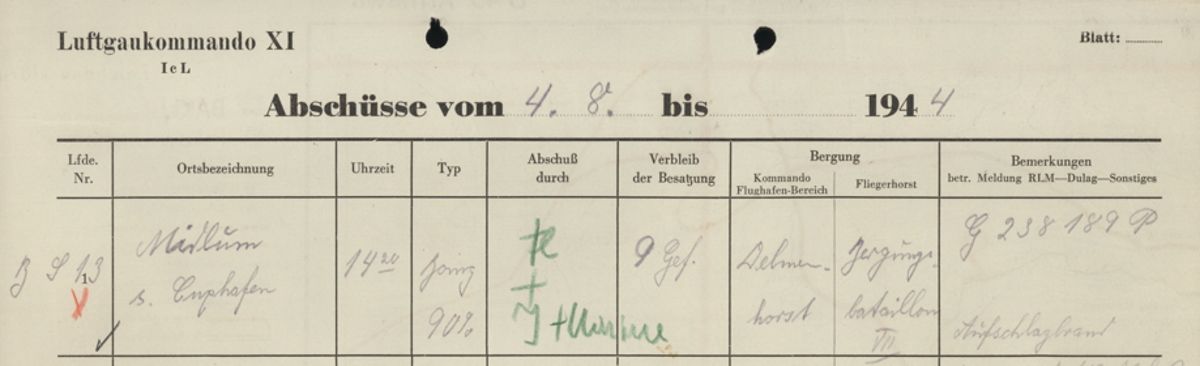 Luftgaukommando XI
I c L
Blatt:
Abschüsse vom 4. 8. bis 1944
Lfde. Nr.
Ortsbezeichnung
Uhrzeit
Typ
Abschuß durch
Verbleib der Besatzung
Bergung
Kommando Flughafen-Bereich
Fliegerhorst
Bemerkungen
betr. Meldung RLM—Dulag—Sonstiges
13
Midlum
s. Cuxhafen
14 20
Boing
90%
+ Marine
9 Gef.
Delmen-
horst
Bergungs-
bataillon
VII
G 238 189 P
Aufschlagbrand